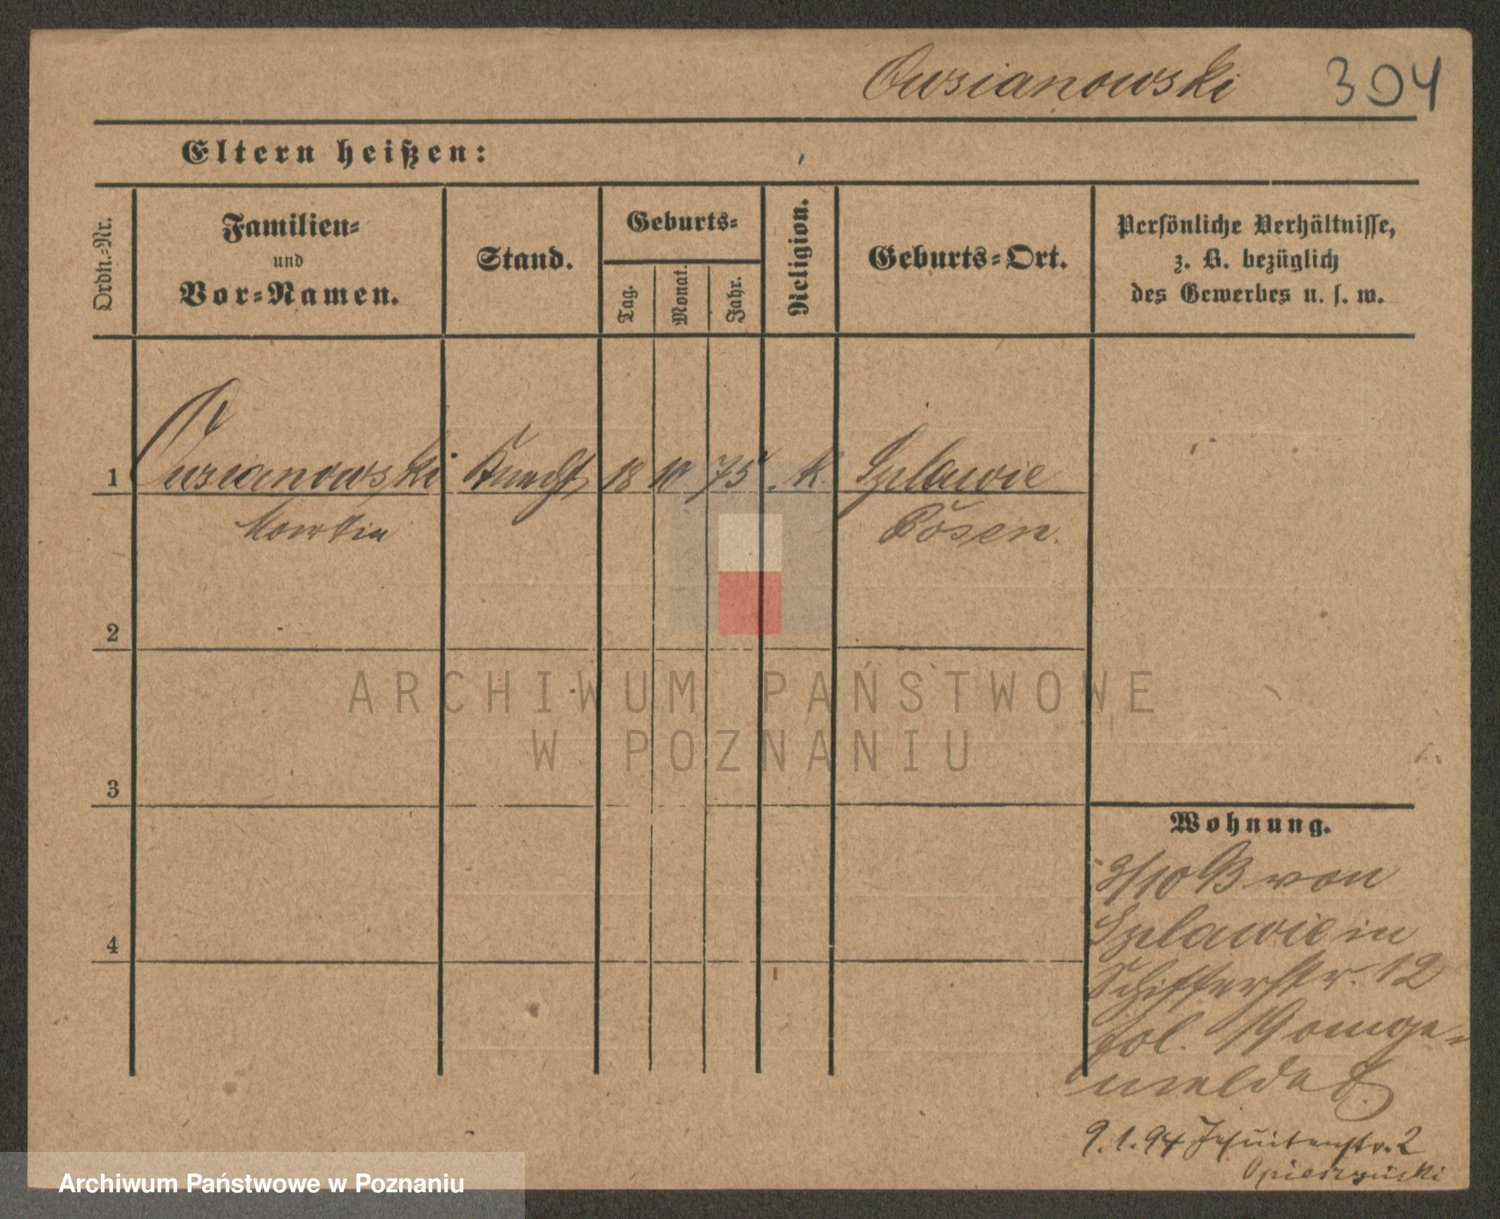 Owsianowski 304
Eltern heißen:
Ordn.-Nr.
Familien-
und
Vor-Namen.
Stand.
Geburts-
Tag.
Monat.
Jahr.
Religion.
Geburts-Ort.
Persönliche Verhältnisse,
z. B. bezüglich
des Gewerbes u. s. w.
1 Owsianowski Knecht 18 10 75 K. Szlawie
Posen.
2
ARCHIWUM PAŃSTWOWE
W POZNANIU
3
4
Wohnung.
9/10 93 von
Szlawie in
Schifferstr. 12
fol. 19 ange-
meldet
9.1.94 Jesuitenstr. 2
Archiwum Państwowe w Poznaniu